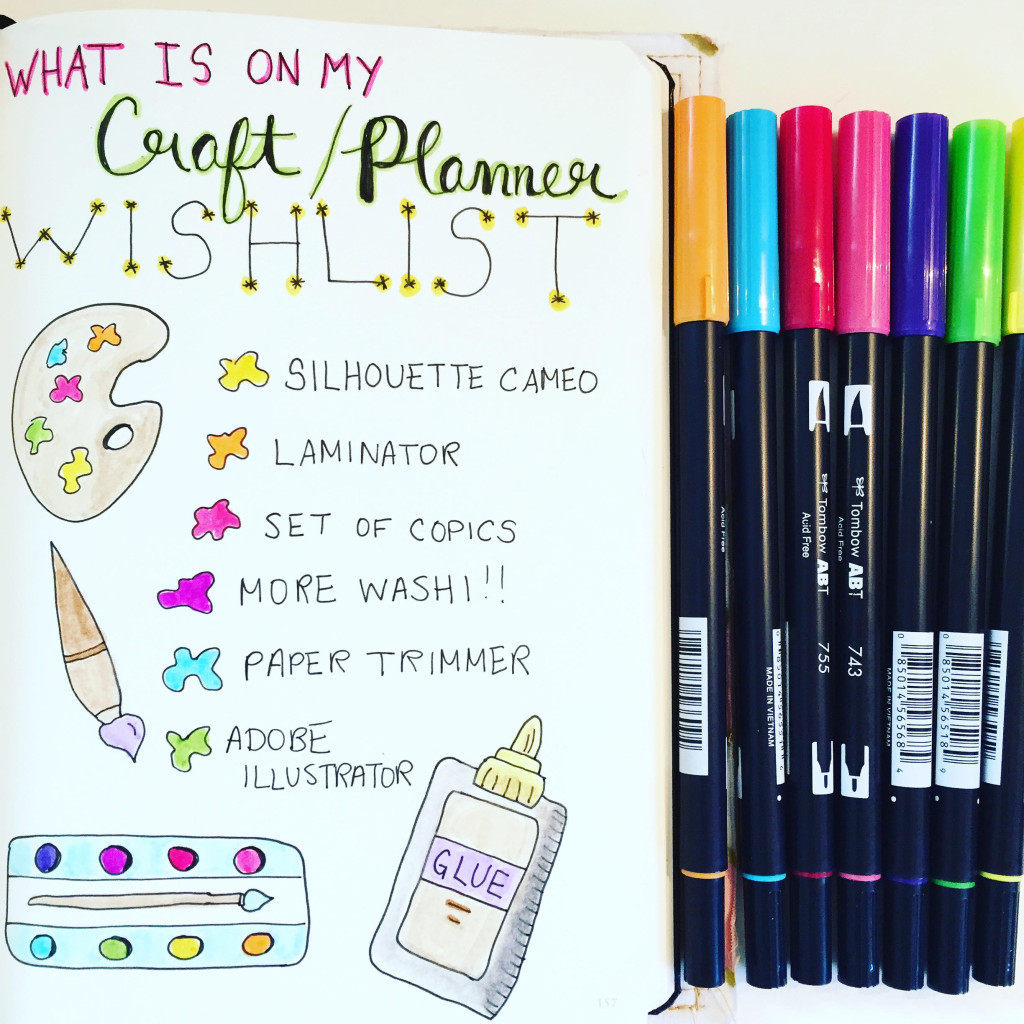 WHAT IS ON MY
Craft/Planner
WISHLIST
SILHOUETTE CAMEO
LAMINATOR
SET OF COPICS
MORE WASHI!!
PAPER TRIMMER
ADOBE
ILLUSTRATOR
GLUE
137
Acid Free
MADE IN VIETNAM
Tombow ABT 755
Acid Free
Tombow ABT 743
Acid Free
MADE IN VIETNAM
0 85014 56568 4
0 85014 56518 9